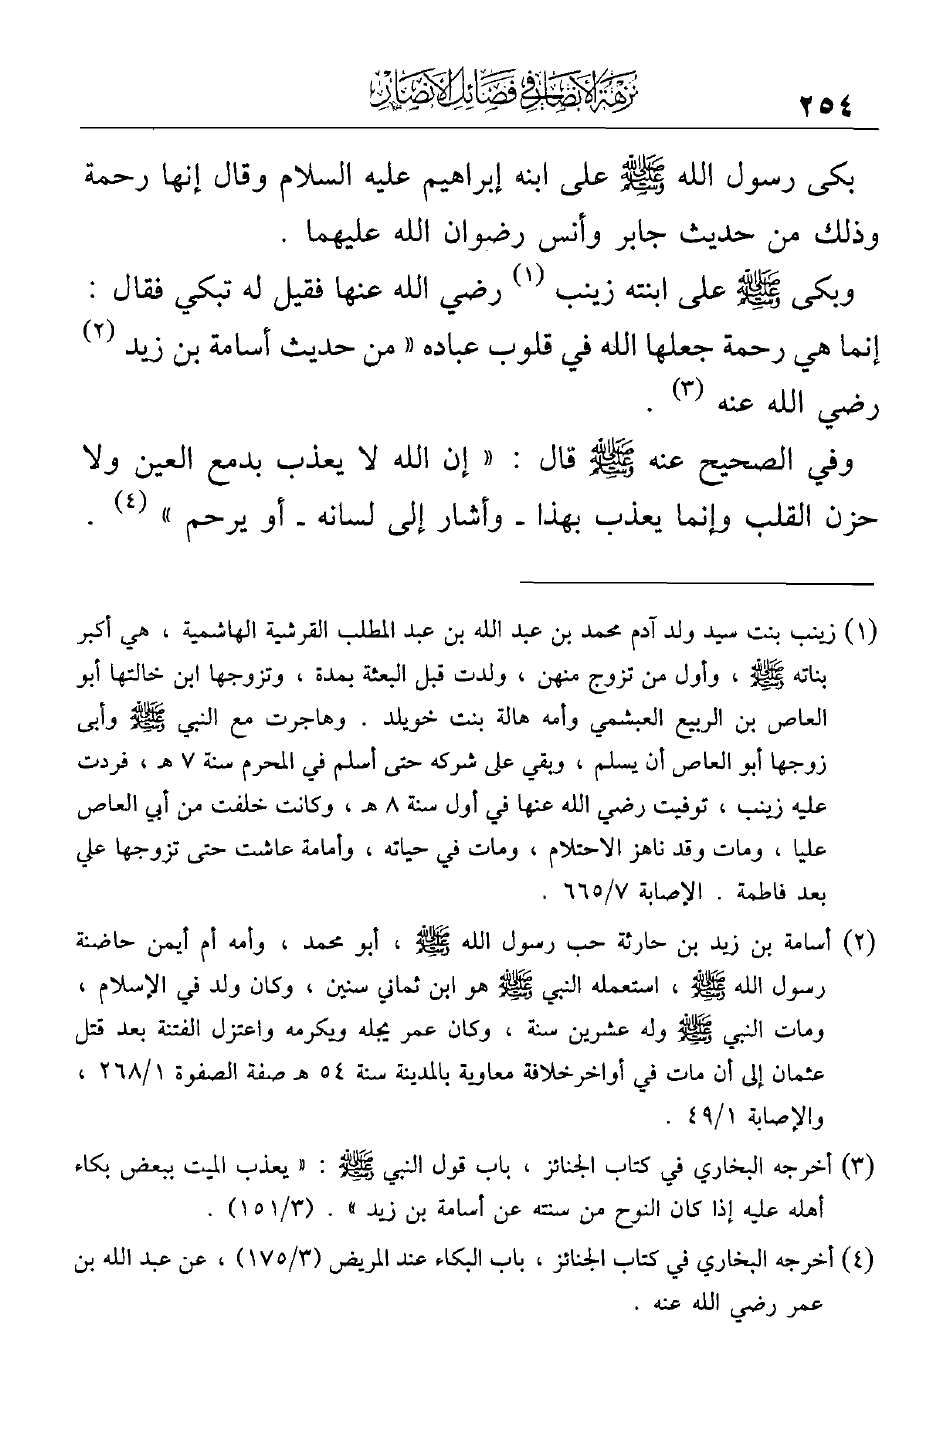 ٢٥٤
نزهة الأبصار في فضائل الأنصار
بكى رسول الله ﷺ على ابنه إبراهيم عليه السلام وقال إنها رحمة
وذلك من حديث جابر وأنس رضوان الله عليهما .
وبكى ﷺ على ابنته زينب (١) رضي الله عنها فقيل له تبكي فقال :
إنما هي رحمة جعلها الله في قلوب عباده « من حديث أسامة بن زيد (٢)
رضي الله عنه (٣) .
وفي الصحيح عنه ﷺ قال : « إن الله لا يعذب بدمع العين ولا
حزن القلب وإنما يعذب بهذا ـ وأشار إلى لسانه ـ أو يرحم » (٤) .
(١) زينب بنت سيد ولد آدم محمد بن عبد الله بن عبد المطلب القرشية الهاشمية ، هي أكبر
بناته ﷺ ، وأول من تزوج منهن ، ولدت قبل البعثة بمدة ، وتزوجها ابن خالتها أبو
العاص بن الربيع العبشمي وأمه هالة بنت خويلد . وهاجرت مع النبي ﷺ وأبى
زوجها أبو العاص أن يسلم ، وبقي على شركه حتى أسلم في المحرم سنة ٧ هـ ، فردت
عليه زينب ، توفيت رضي الله عنها في أول سنة ٨ هـ ، وكانت خلفت من أبي العاص
عليا ، ومات وقد ناهز الاحتلام ، ومات في حياته ، وأمامة عاشت حتى تزوجها علي
بعد فاطمة . الإصابة ٦٦٥/٧ .
(٢) أسامة بن زيد بن حارثة حب رسول الله ﷺ ، أبو محمد ، وأمه أم أيمن حاضنة
رسول الله ﷺ ، استعمله النبي ﷺ هو ابن ثماني سنين ، وكان ولد في الإسلام ،
ومات النبي ﷺ وله عشرين سنة ، وكان عمر يجله ويكرمه واعتزل الفتنة بعد قتل
عثمان إلى أن مات في أواخرخلافة معاوية بالمدينة سنة ٥٤ هـ صفة الصفوة ٢٦٨/١ ،
والإصابة ٤٩/١ .
(٣) أخرجه البخاري في كتاب الجنائز ، باب قول النبي ﷺ : « يعذب الميت ببعض بكاء
أهله عليه إذا كان النوح من سنته عن أسامة بن زيد » . (١٥١/٣) .
(٤) أخرجه البخاري في كتاب الجنائز ، باب البكاء عند المريض (١٧٥/٣) ، عن عبد الله بن
عمر رضي الله عنه .